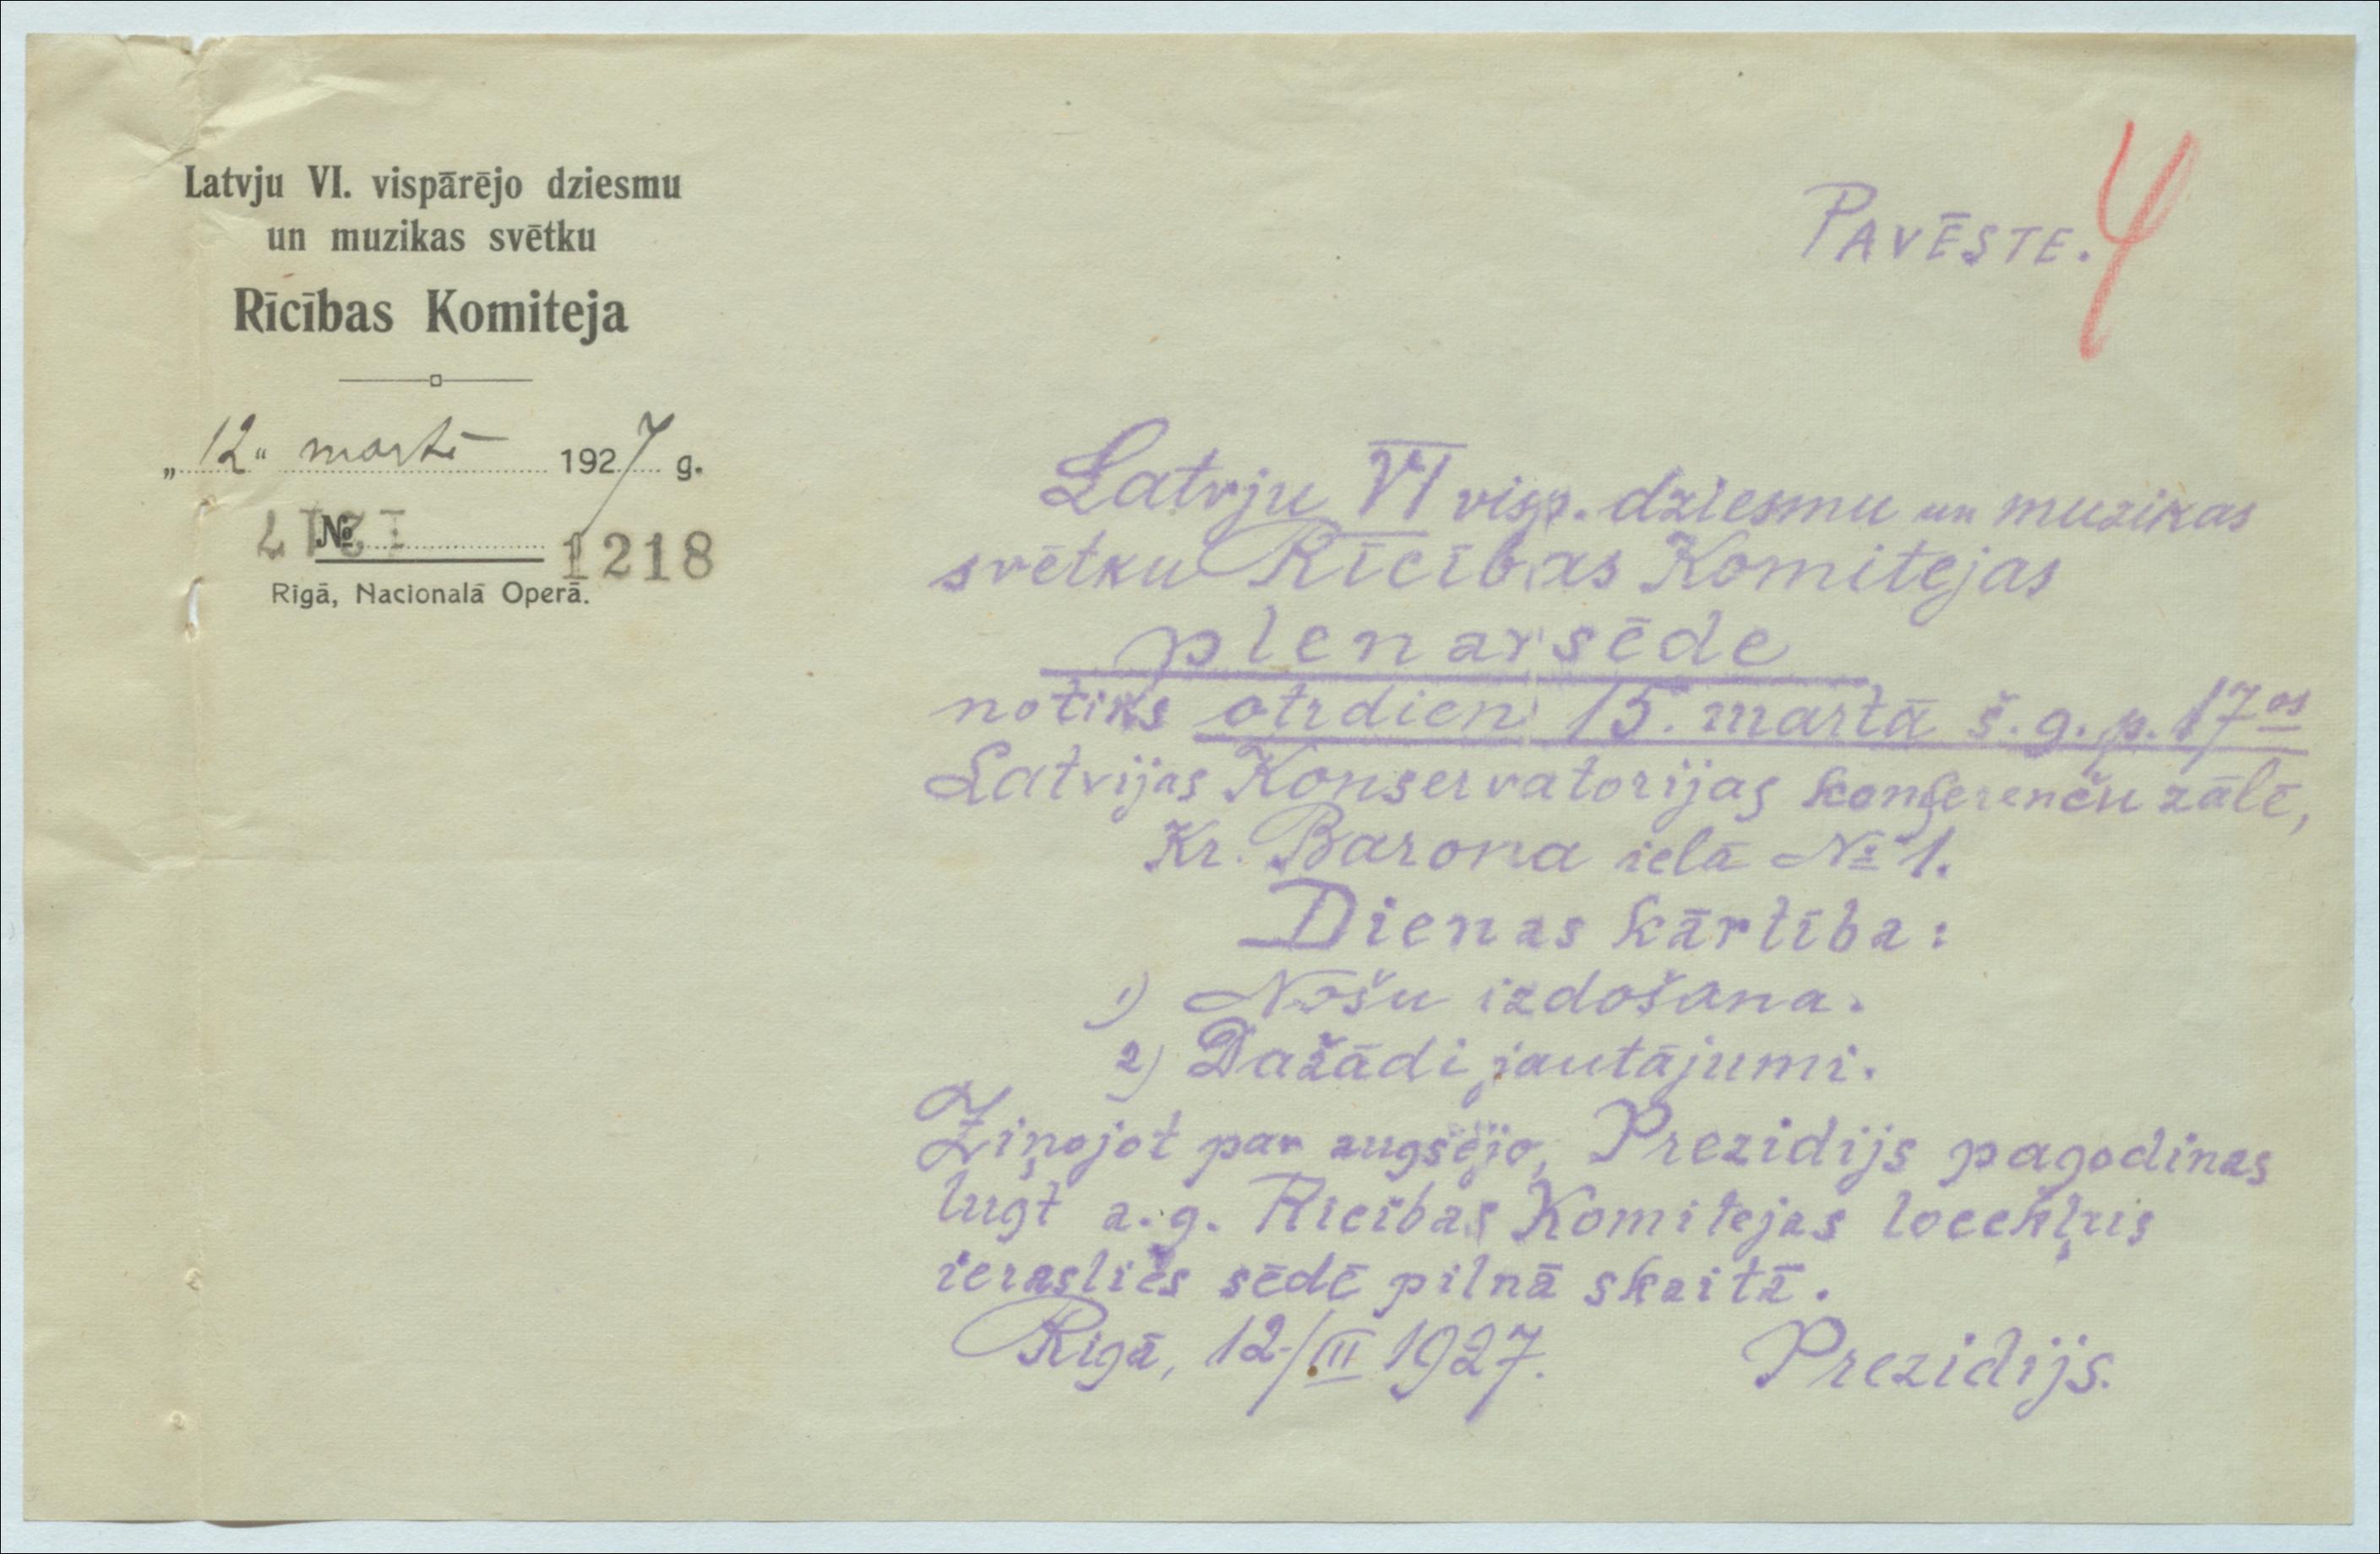 Latvju VI. vispārējo dziesmu
un muzikas svētku
Rīcības Komiteja
„12“ martā 1927 g.
№ 1218
1217
Rīgā, Nacionalā Operā.
PAVĒSTE.
4
Latvju VI visp. dziesmu un muzikas
svētku Rīcības Komitejas
plenarsēde
notiks otrdien 15. martā š. g. p. 17os
Latvijas Konservatorijas konferenču zālē,
Kr. Barona ielā № 1.
Dienas kārtība:
1) Nošu izdošana.
2) Dažādi jautājumi.
Ziņojot par augšējo, Prezidijs pagodinas
lūgt a. g. Rīcības Komitejas locekļus
ierasties sēdē pilnā skaitā.
Rīgā, 12/III 1927.
Prezidijs.